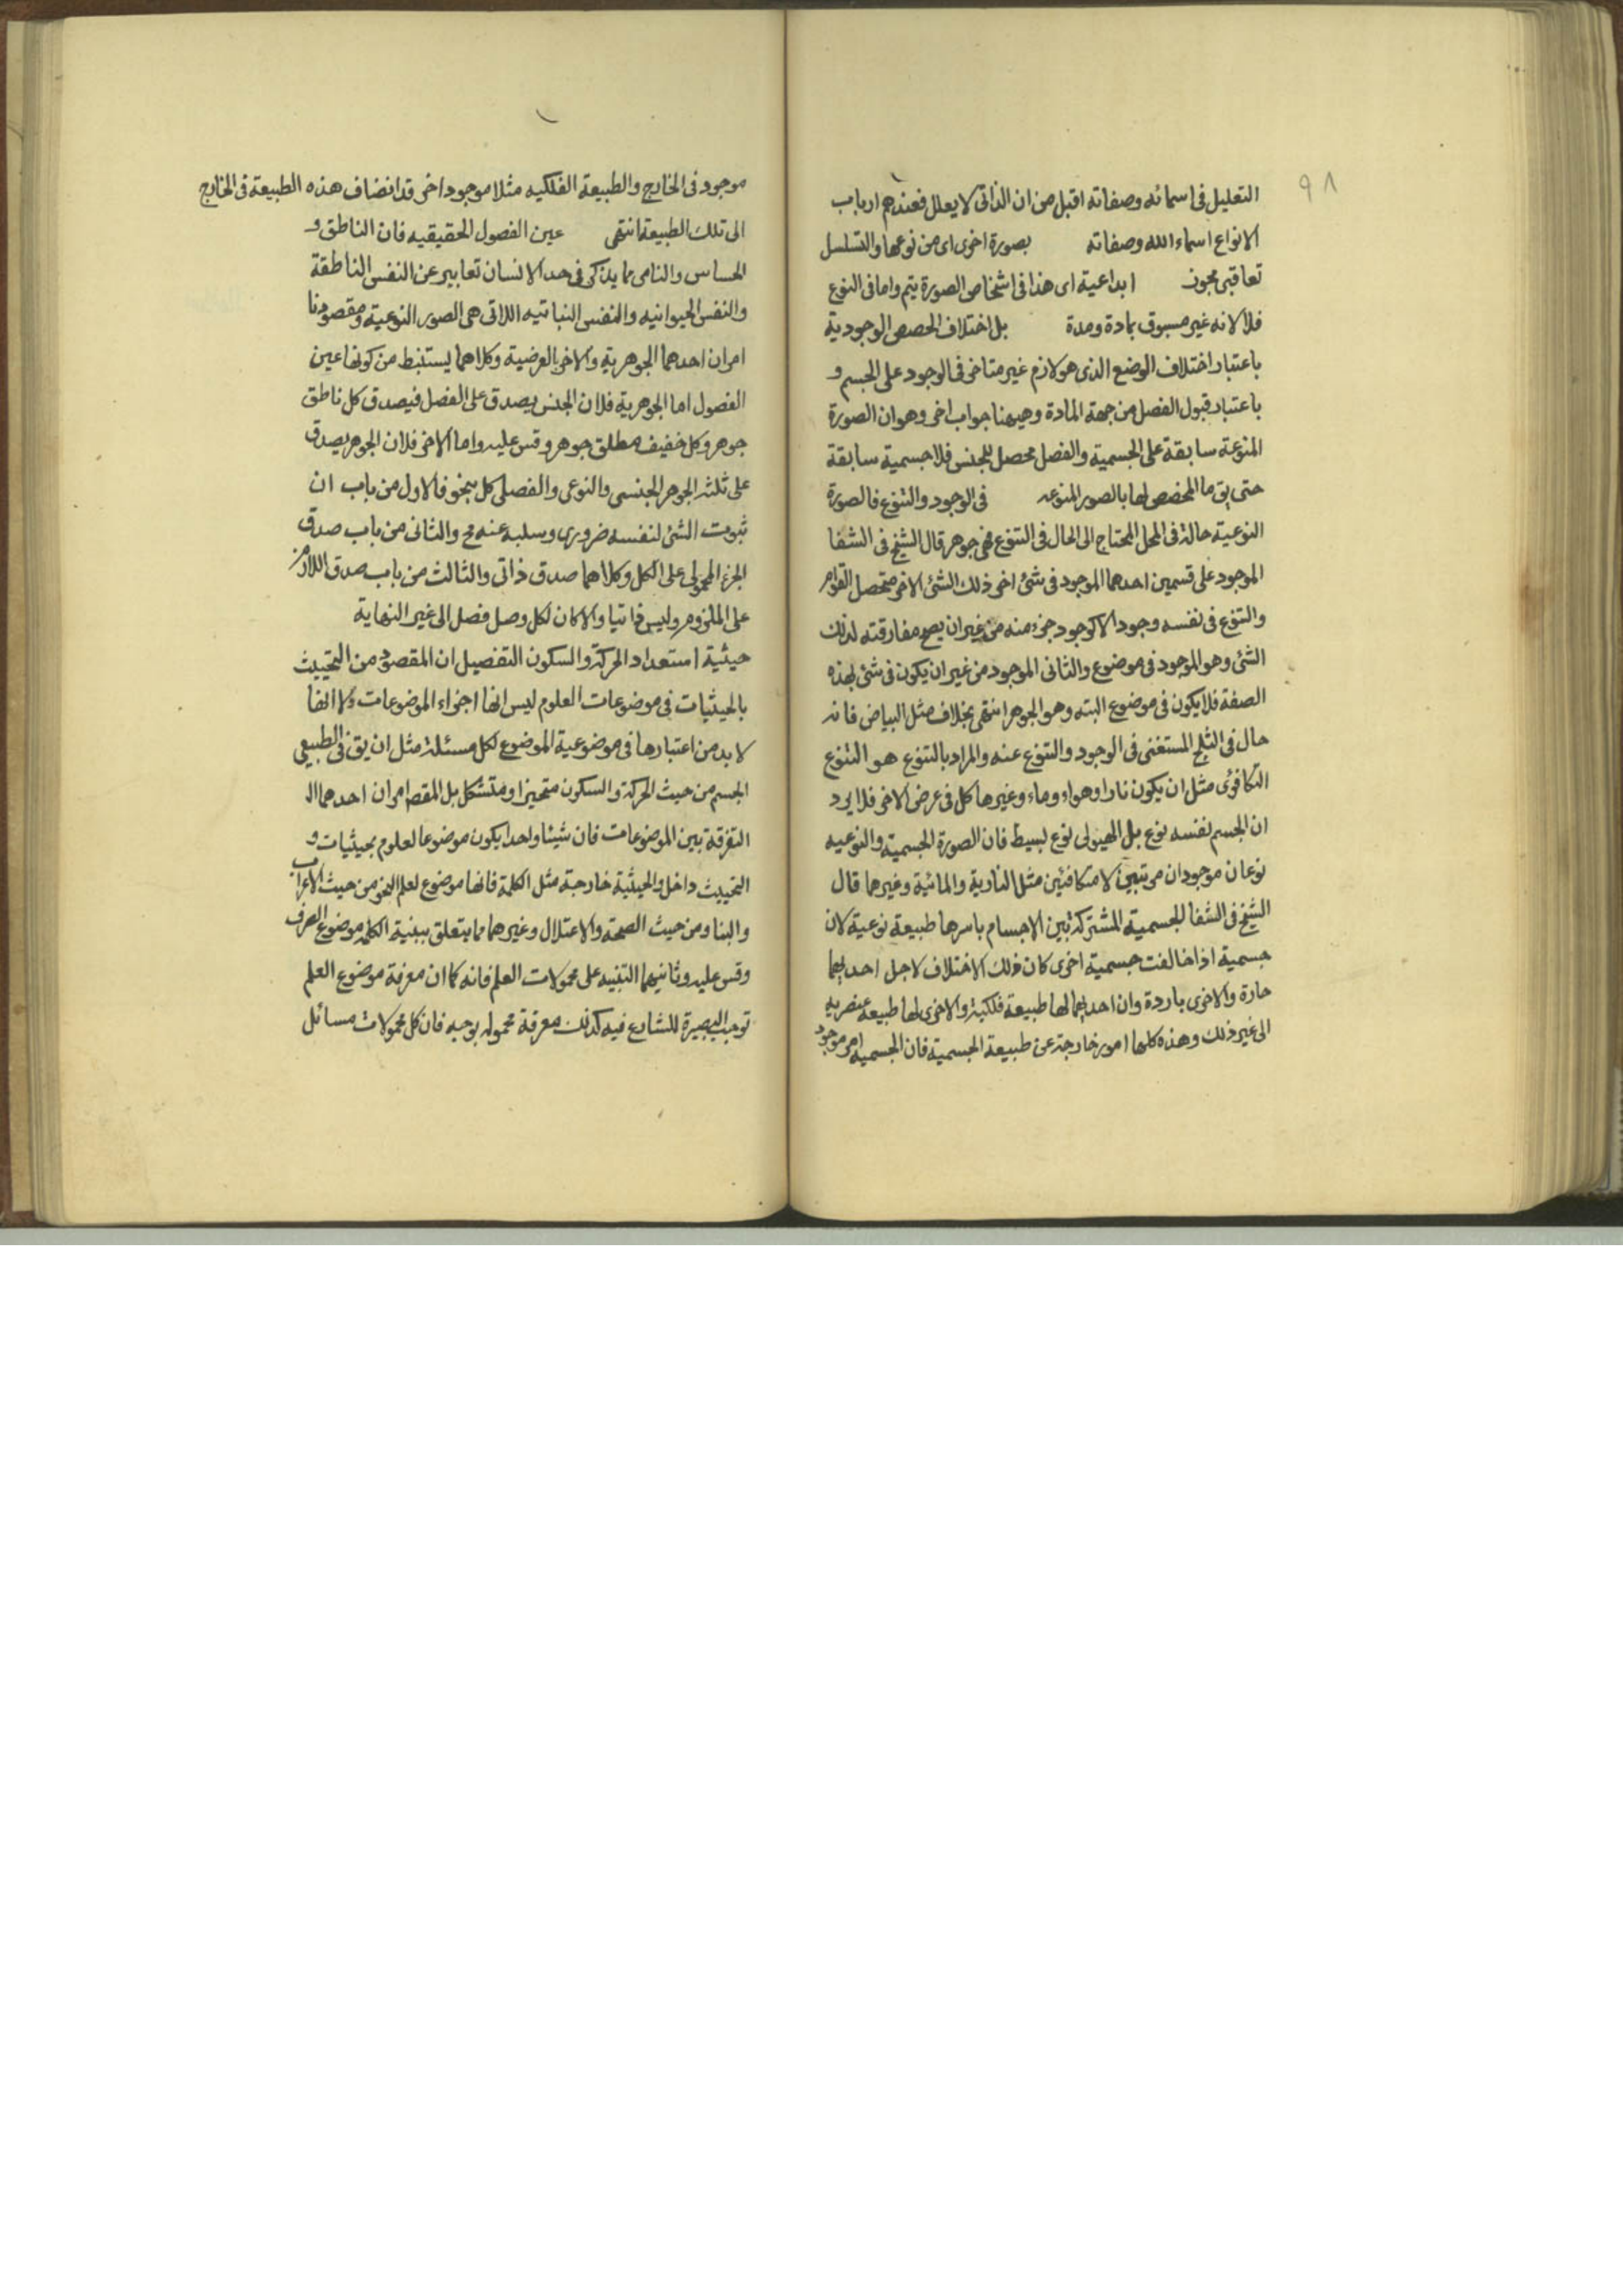 ٩٨
التعليل فى اسمائه وصفاته اقبل من ان الذاتى لا يعلل فعندهم ارباب
الانواع اسماء الله وصفاته بصورة اخرى اى من نوعها والتسلسل
تعاقبى مجوز ابداعية اى هذا فى اشخاص الصورة يتم واما فى النوع
فلا لانه غير مسبوق بمادة ومدة بل اختلاف الحصص الوجودية
باعتبار اختلاف الوضع الذى هو لازم غير متاخر فى الوجود على الجسم و
باعتبار قبول الفصل من جهة المادة وهيهنا جواب اخر وهو ان الصورة
المنوعة سابقة على الجسمية والفصل محصل للجنس فلا جسمية سابقة
حتى يق ما المخصص لها بالصور المنوعه فى الوجود والتنوع فالصورة
النوعية حالة فى المحل المحتاج الى الحال فى التنوع فهى جوهر قال الشيخ فى الشفا
الموجود على قسمين احدهما الموجود فى شئ اخر ذلك الشئ الاخر متحصل القوام
والتنوع فى نفسه وجودا لا كوجود جزء منه من غير ان يصح مفارقته لذلك
الشئ وهو الموجود فى موضوع والثانى الموجود من غير ان يكون فى شئ بهذه
الصفة فلا يكون فى موضوع البته وهو الجوهر انتهى بخلاف مثل البياض فانه
حال فى الثلج المستغنى فى الوجود والتنوع عنه والمراد بالتنوع هو التنوع
التكافؤى مثل ان يكون نارا وهواء وماء وغيرها كل فى عرض الاخر فلا يرد
ان الجسم نفسه نوع بل الهيولى نوع بسيط فان الصورة الجسمية والنوعيه
نوعان موجودان مرتبين لا متكافئين مثل النارية والمائية وغيرهما قال
الشيخ فى الشفا الجسمية المشتركة بين الاجسام باسرها طبيعة نوعية لان
جسمية اذا خالفت جسمية اخرى كان ذلك الاختلاف لاجل احديهما
حارة والاخرى باردة وان احديهما لها طبيعة فلكية والاخرى لها طبيعه عنصريه
الى غير ذلك وهذه كلها امور خارجة عن طبيعة الجسمية فان الجسميه امر موجود
موجود فى الخارج والطبيعة الفلكيه مثلا موجود اخر قد انضاف هذه الطبيعة فى الخارج
الى تلك الطبيعة انتهى عين الفصول الحقيقيه فان الناطق و
الحساس والنامى مما يذكر فى حد الانسان تعابير عن النفس الناطقة
والنفس الحيوانيه والنفس النباتيه اللاتى هى الصور النوعية ومقصودنا
امران احدهما الجوهرية والاخر العرضية وكلاهما يستنبط من كونها عين
الفصول اما الجوهرية فلان الجنس يصدق على الفصل فيصدق كل ناطق
جوهر وكل خفيف مطلق جوهر وقس عليه واما الاخر فلان الجوهر يصدق
على ثلثه الجوهر الجنسى والنوعى والفصلى كل بنحو فالاول من باب ان
ثبوت الشئ لنفسه ضرورى وسلبه عنه مح والثانى من باب صدق
الجزء المحمولى على الكل وكلاهما صدق ذاتى والثالث من باب صدق اللازم
على الملزوم وليس ذاتيا والا كان لكل وصل فصل الى غير النهاية
حيثية استعداد الحركة والسكون التفصيل ان المقصود من التحييث
بالحيثيات فى موضوعات العلوم ليس انها اجزاء الموضوعات ولا انها
لا بد من اعتبارها فى موضوعية الموضوع لكل مسئلة مثل ان يق فى الطبيعى
الجسم من حيث الحركة والسكون متحيز او متشكل بل المقصد امران احدهما ال
التفرقة بين الموضوعات فان شيئا واحدا يكون موضوعا لعلوم بحيثيات و
التحييث داخل والحيثية خارجة مثل الكلمة فانها موضوع لعلم النحو من حيث الاعراب
والبنا ومن حيث الصحة والاعتلال وغيرهما مما يتعلق ببنية الكلمة موضوع الصرف
وقس عليه وثانيهما التنبيه على محمولات العلم فانه كما ان معرفة موضوع العلم
توجب البصيرة للشارع فيه كذلك معرفة محموله بوجه فان كل محمولات مسائل